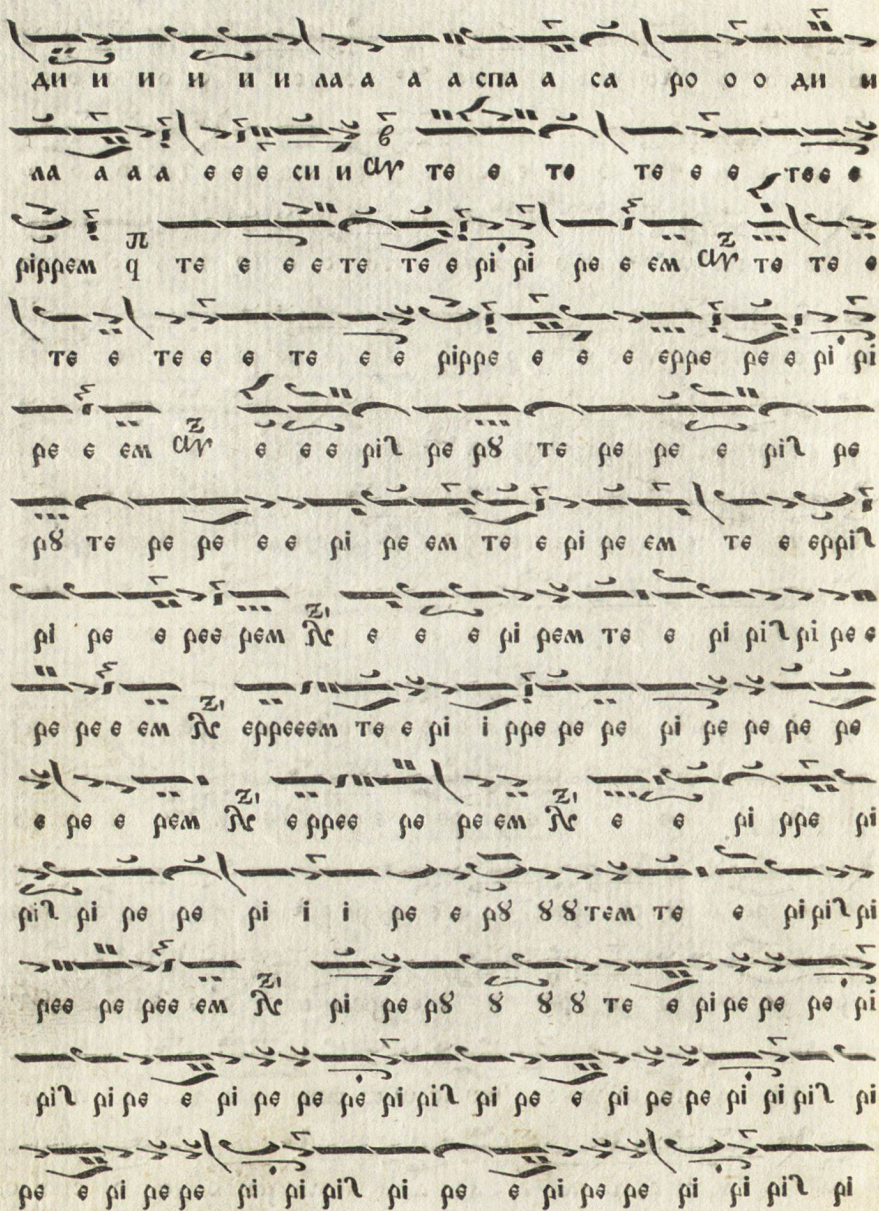 ди и и и и и ла а а а спа а са ро о о ди и
ла а а а е е е си и те е те те е е те е е
ріррем те е е е те те е рі рі ре е ем те те е
те е те е е те е е рірре е е е ерре ре е рі рі
ре е ем е е е ріꙆ ре рꙋ те ре ре е ріꙆ ре
рꙋ те ре ре е е рі ре ем те е рі ре ем те е ерріꙆ
рі ре е рее рем е е е рі рем те е рі ріꙆ рі ре е
ре ре е ем ерреeем те е рі і рре ре ре рі ре ре ре ре
е ре е рем еррее ре ре ем е е рі рре рі
ріꙆ рі ре ре рі і і ре е рꙋ ꙋ ꙋ тем те е рі ріꙆ рі
рее ре рее ем рі ре рꙋ ꙋ ꙋ ꙋ те е рі ре ре ре рі
ріꙆ рі ре е рі ре ре ре рі ріꙆ рі ре е рі ре ре рі рі ріꙆ рі
ре е рі ре ре рі рі ріꙆ рі ре е рі ре ре рі рі ріꙆ рі